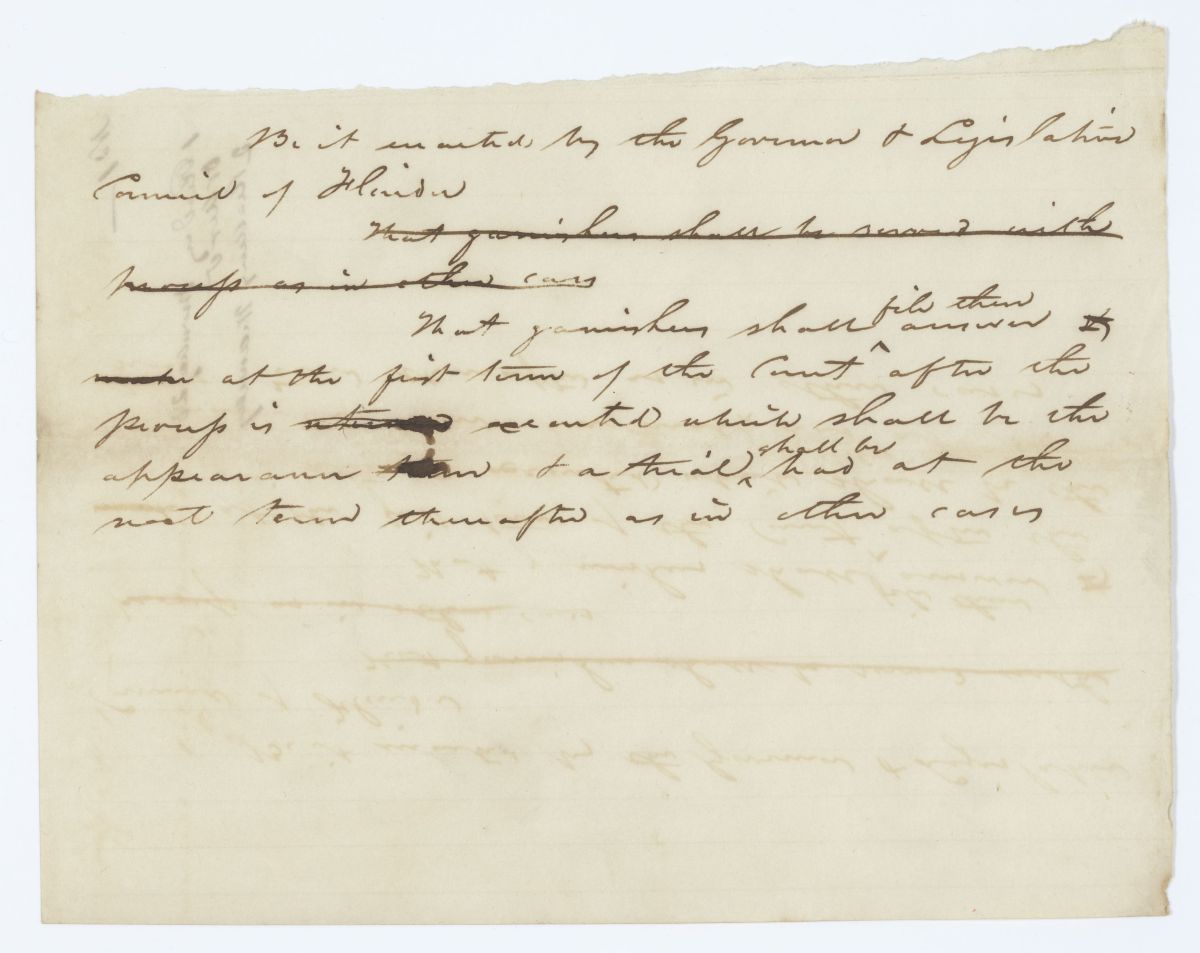 Be it enacted by the Governor & Legislative
Council of Florida
That garnishees shall be served with
process as in other cases
That garnishees shall file their answer
at the first term of the Court after the
process is executed which shall be the
appearance term & a trial shall be had at the
next term thereafter as in other cases